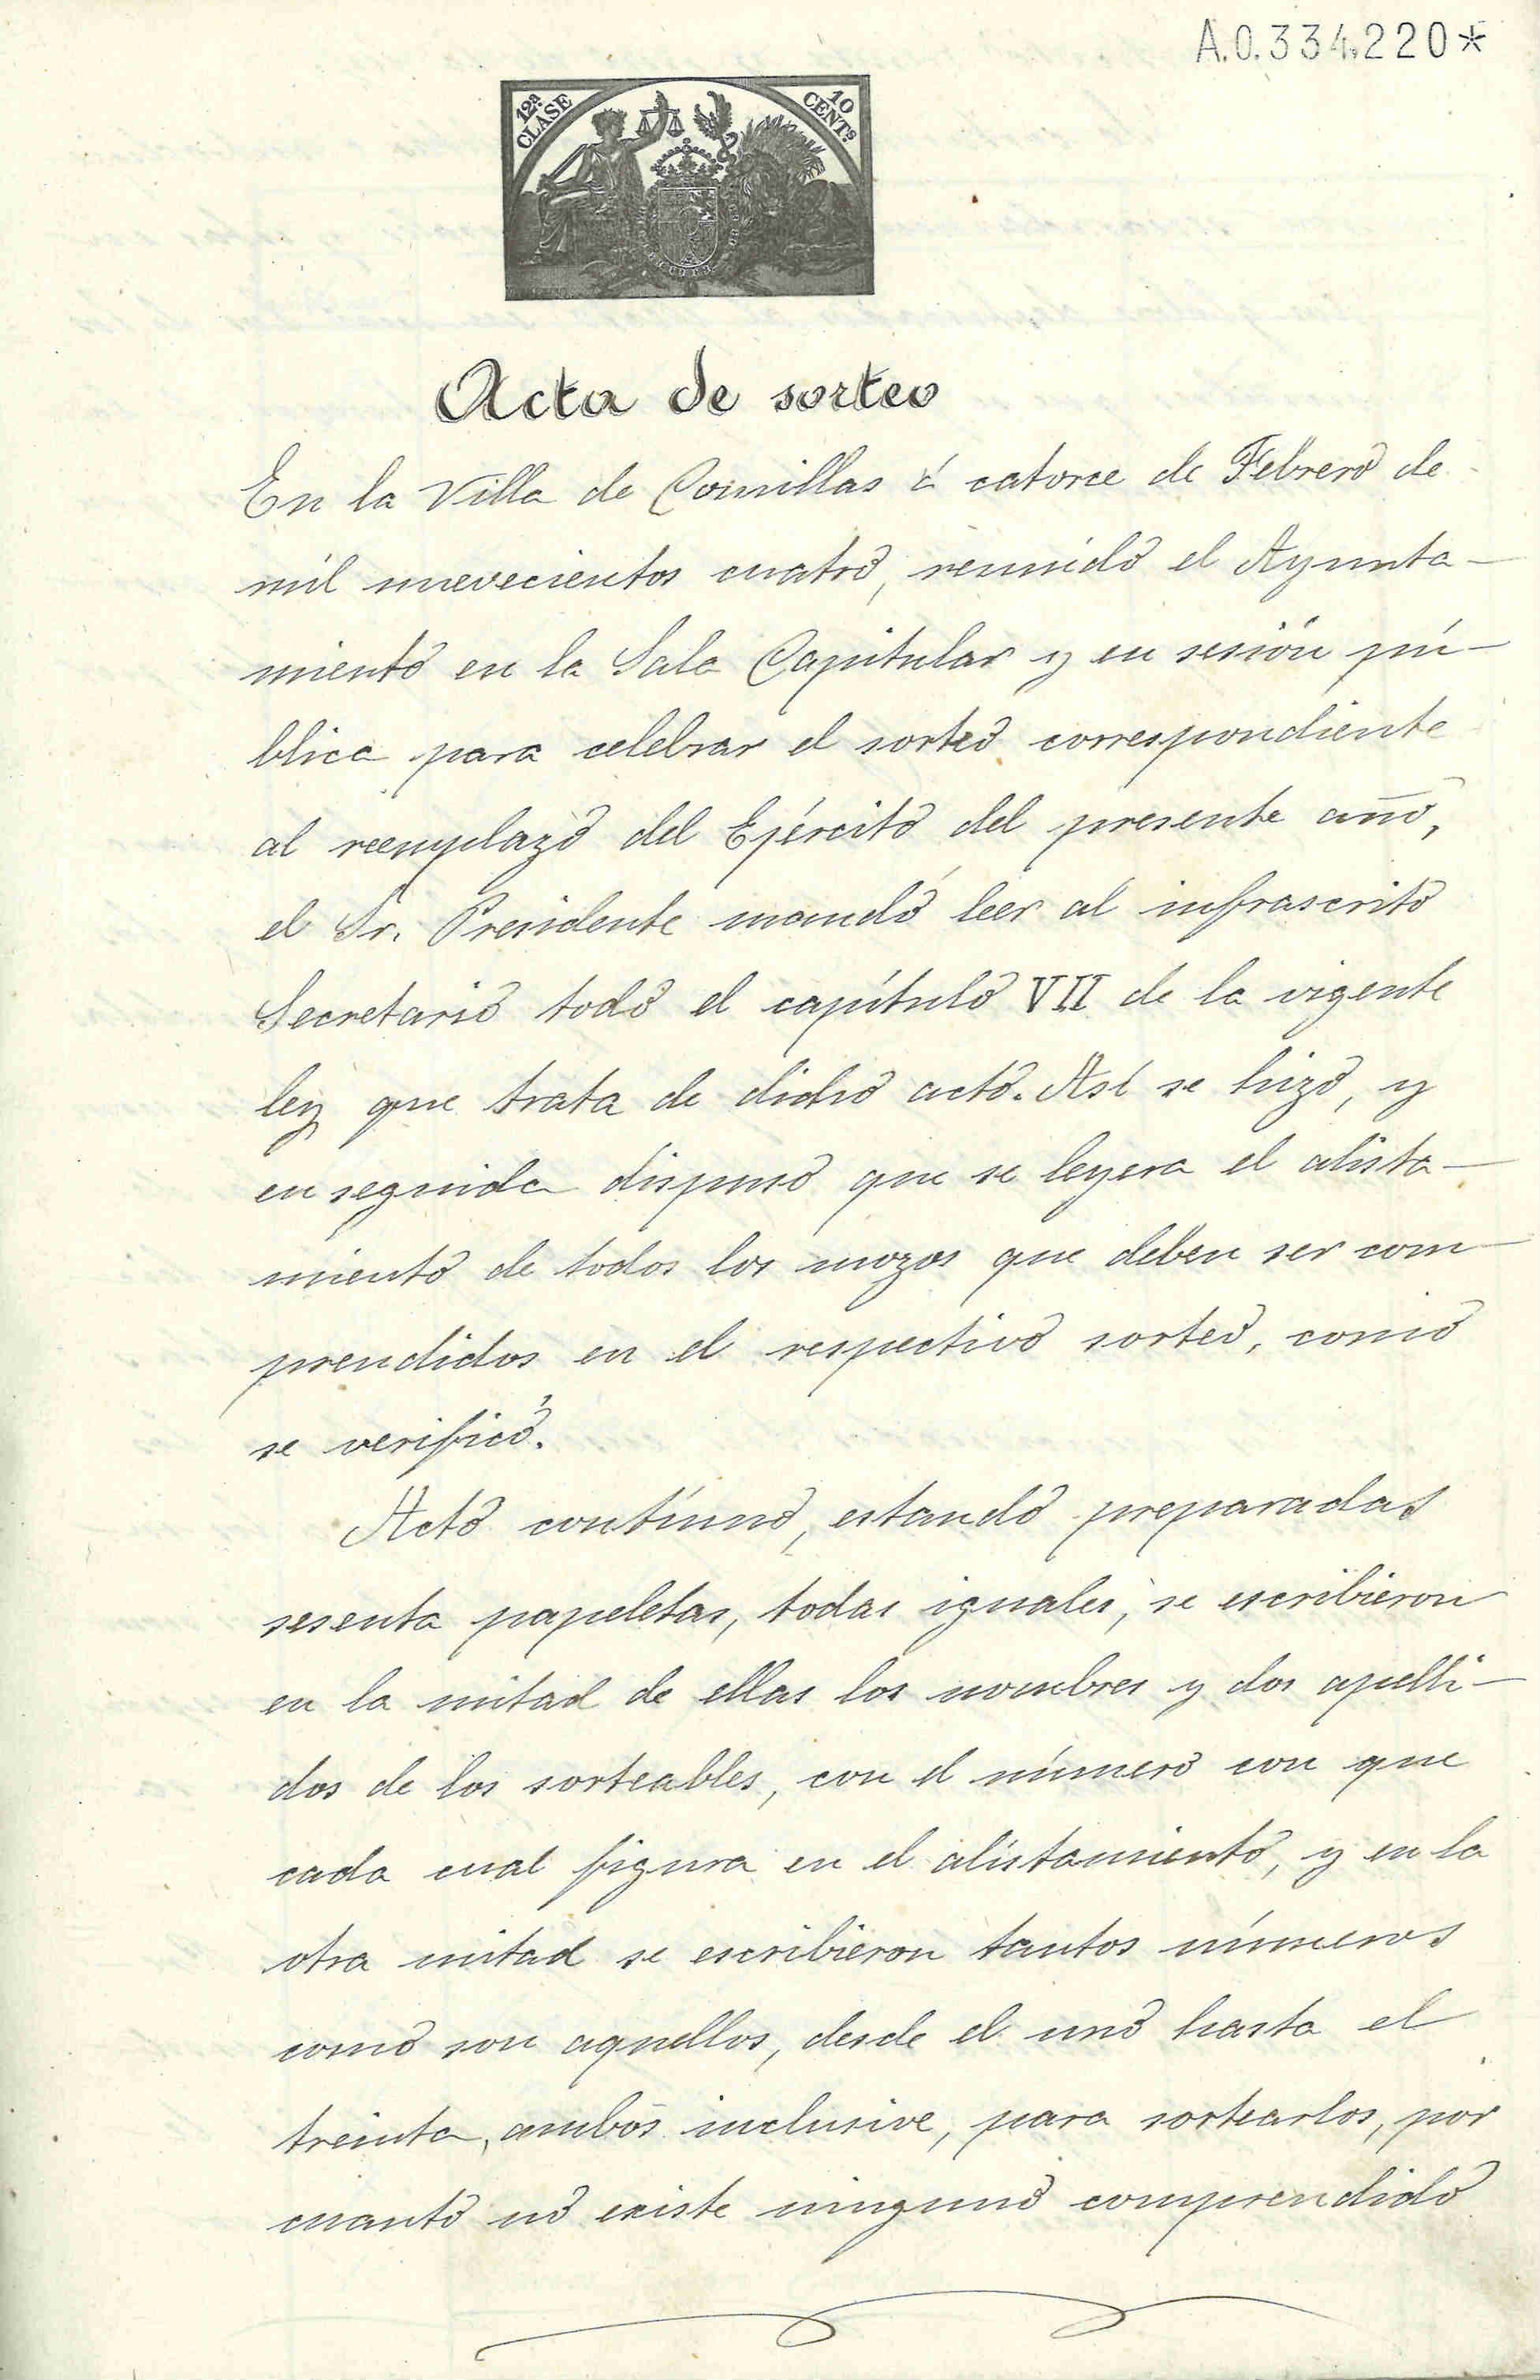 A.0.334.220*
12ª CLASE
10 CENTS
Acta de sorteo
En la Villa de Comillas á catorce de Febrero de
mil nuevecientos cuatro, reunido el Ayunta-
miento en la Sala Capitular y en sesión pú-
blica para celebrar el sorteo correspondiente
al reemplazo del Ejército del presente año,
el Sr. Presidente mandó leer al infrascrito
Secretario todo el capítulo VII de la vigente
ley que trata de dicho acto. Así se hizo, y
en seguida dispuso que se leyera el alista-
miento de todos los mozos que deben ser com-
prendidos en el respectivo sorteo, como
se verificó.
Acto contínuo, estando preparadas
sesenta papeletas, todas iguales, se escribieron
en la mitad de ellas los nombres y dos apelli-
dos de los sorteables, con el número con que
cada cual figura en el alistamiento, y en la
otra mitad se escribieron tantos números
como son aquellos, desde el uno hasta el
treinta, ambos inclusive, para sortearlos, por
cuanto no existe ninguno comprendido